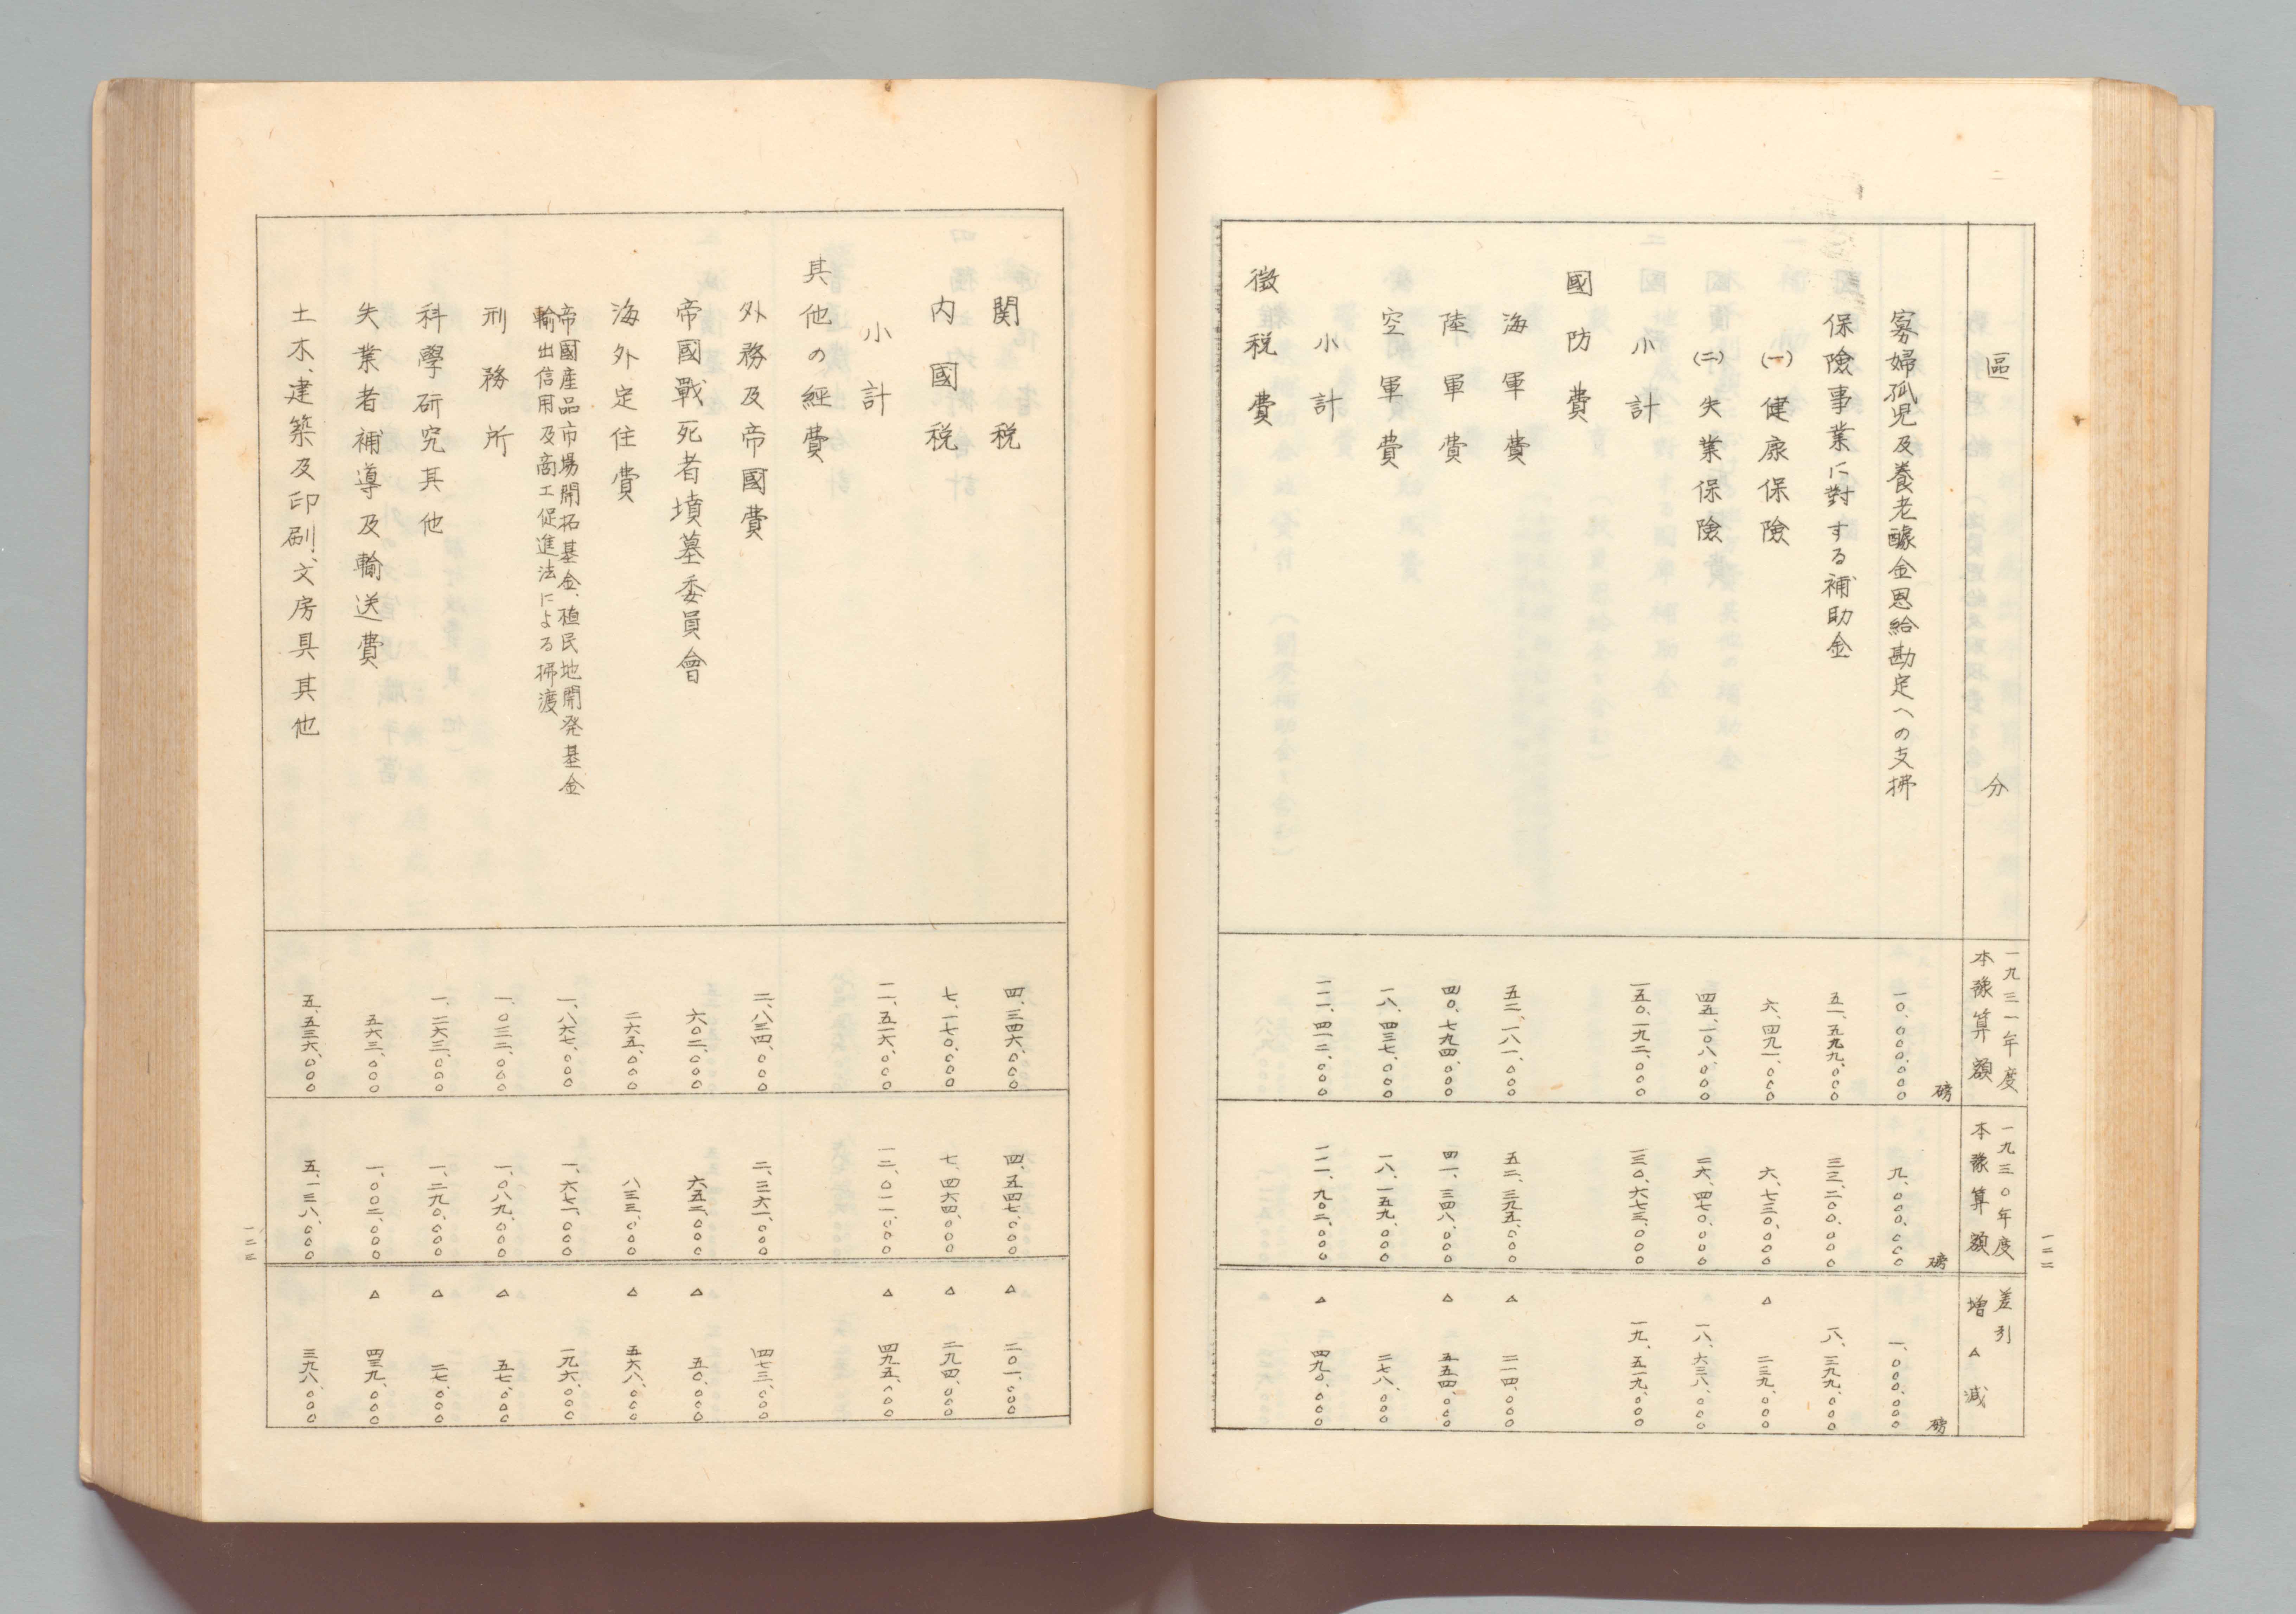 一二二
區分 一九三一年度本豫算額 一九三〇年度本豫算額 差引増△減
磅 磅 磅
寡婦孤児及養老醵金恩給勘定への支拂 一〇、〇〇〇、〇〇〇 九、〇〇〇、〇〇〇 一、〇〇〇、〇〇〇
保險事業に對する補助金 五一、五九九、〇〇〇 三三、二〇〇、〇〇〇 一八、三九九、〇〇〇
(一)健康保險 六、四九一、〇〇〇 六、七三〇、〇〇〇 △ 二三九、〇〇〇
(二)失業保險 四五、一〇八、〇〇〇 二六、四七〇、〇〇〇 一八、六三八、〇〇〇
小計 一五〇、一九二、〇〇〇 一三〇、六七三、〇〇〇 一九、五一九、〇〇〇
國防費
海軍費 五二、一八一、〇〇〇 五二、三九五、〇〇〇 △ 二一四、〇〇〇
陸軍費 四〇、七九四、〇〇〇 四一、三四八、〇〇〇 △ 五五四、〇〇〇
空軍費 一八、四三七、〇〇〇 一八、一五九、〇〇〇 二七八、〇〇〇
小計 一一一、四一二、〇〇〇 一一一、九〇二、〇〇〇 △ 四九〇、〇〇〇
徴税費
関税 四、三四六、〇〇〇 四、五四七、〇〇〇 △ 二〇一、〇〇〇
内國税 七、一七〇、〇〇〇 七、四六四、〇〇〇 △ 二九四、〇〇〇
小計 一一、五一六、〇〇〇 一二、〇一一、〇〇〇 △ 四九五、〇〇〇
其他の經費
外務及帝國費 二、八三四、〇〇〇 二、三六一、〇〇〇 四七三、〇〇〇
帝國戰死者墳墓委員會 六〇二、〇〇〇 六五二、〇〇〇 △ 五〇、〇〇〇
海外定住費 二六五、〇〇〇 八三三、〇〇〇 △ 五六八、〇〇〇
帝國産品市場開拓基金、殖民地開発基金
輸出信用及商工促進法による拂渡 一、八六七、〇〇〇 一、六七一、〇〇〇 一九六、〇〇〇
刑務所 一、〇三二、〇〇〇 一、〇八九、〇〇〇 △ 五七、〇〇〇
科學研究其他 一、二六三、〇〇〇 一、二九〇、〇〇〇 △ 二七、〇〇〇
失業者補導及輸送費 五六三、〇〇〇 一、〇〇二、〇〇〇 △ 四三九、〇〇〇
土木、建築及印刷、文房具其他 五、五三六、〇〇〇 五、一三八、〇〇〇 三九八、〇〇〇
一二三